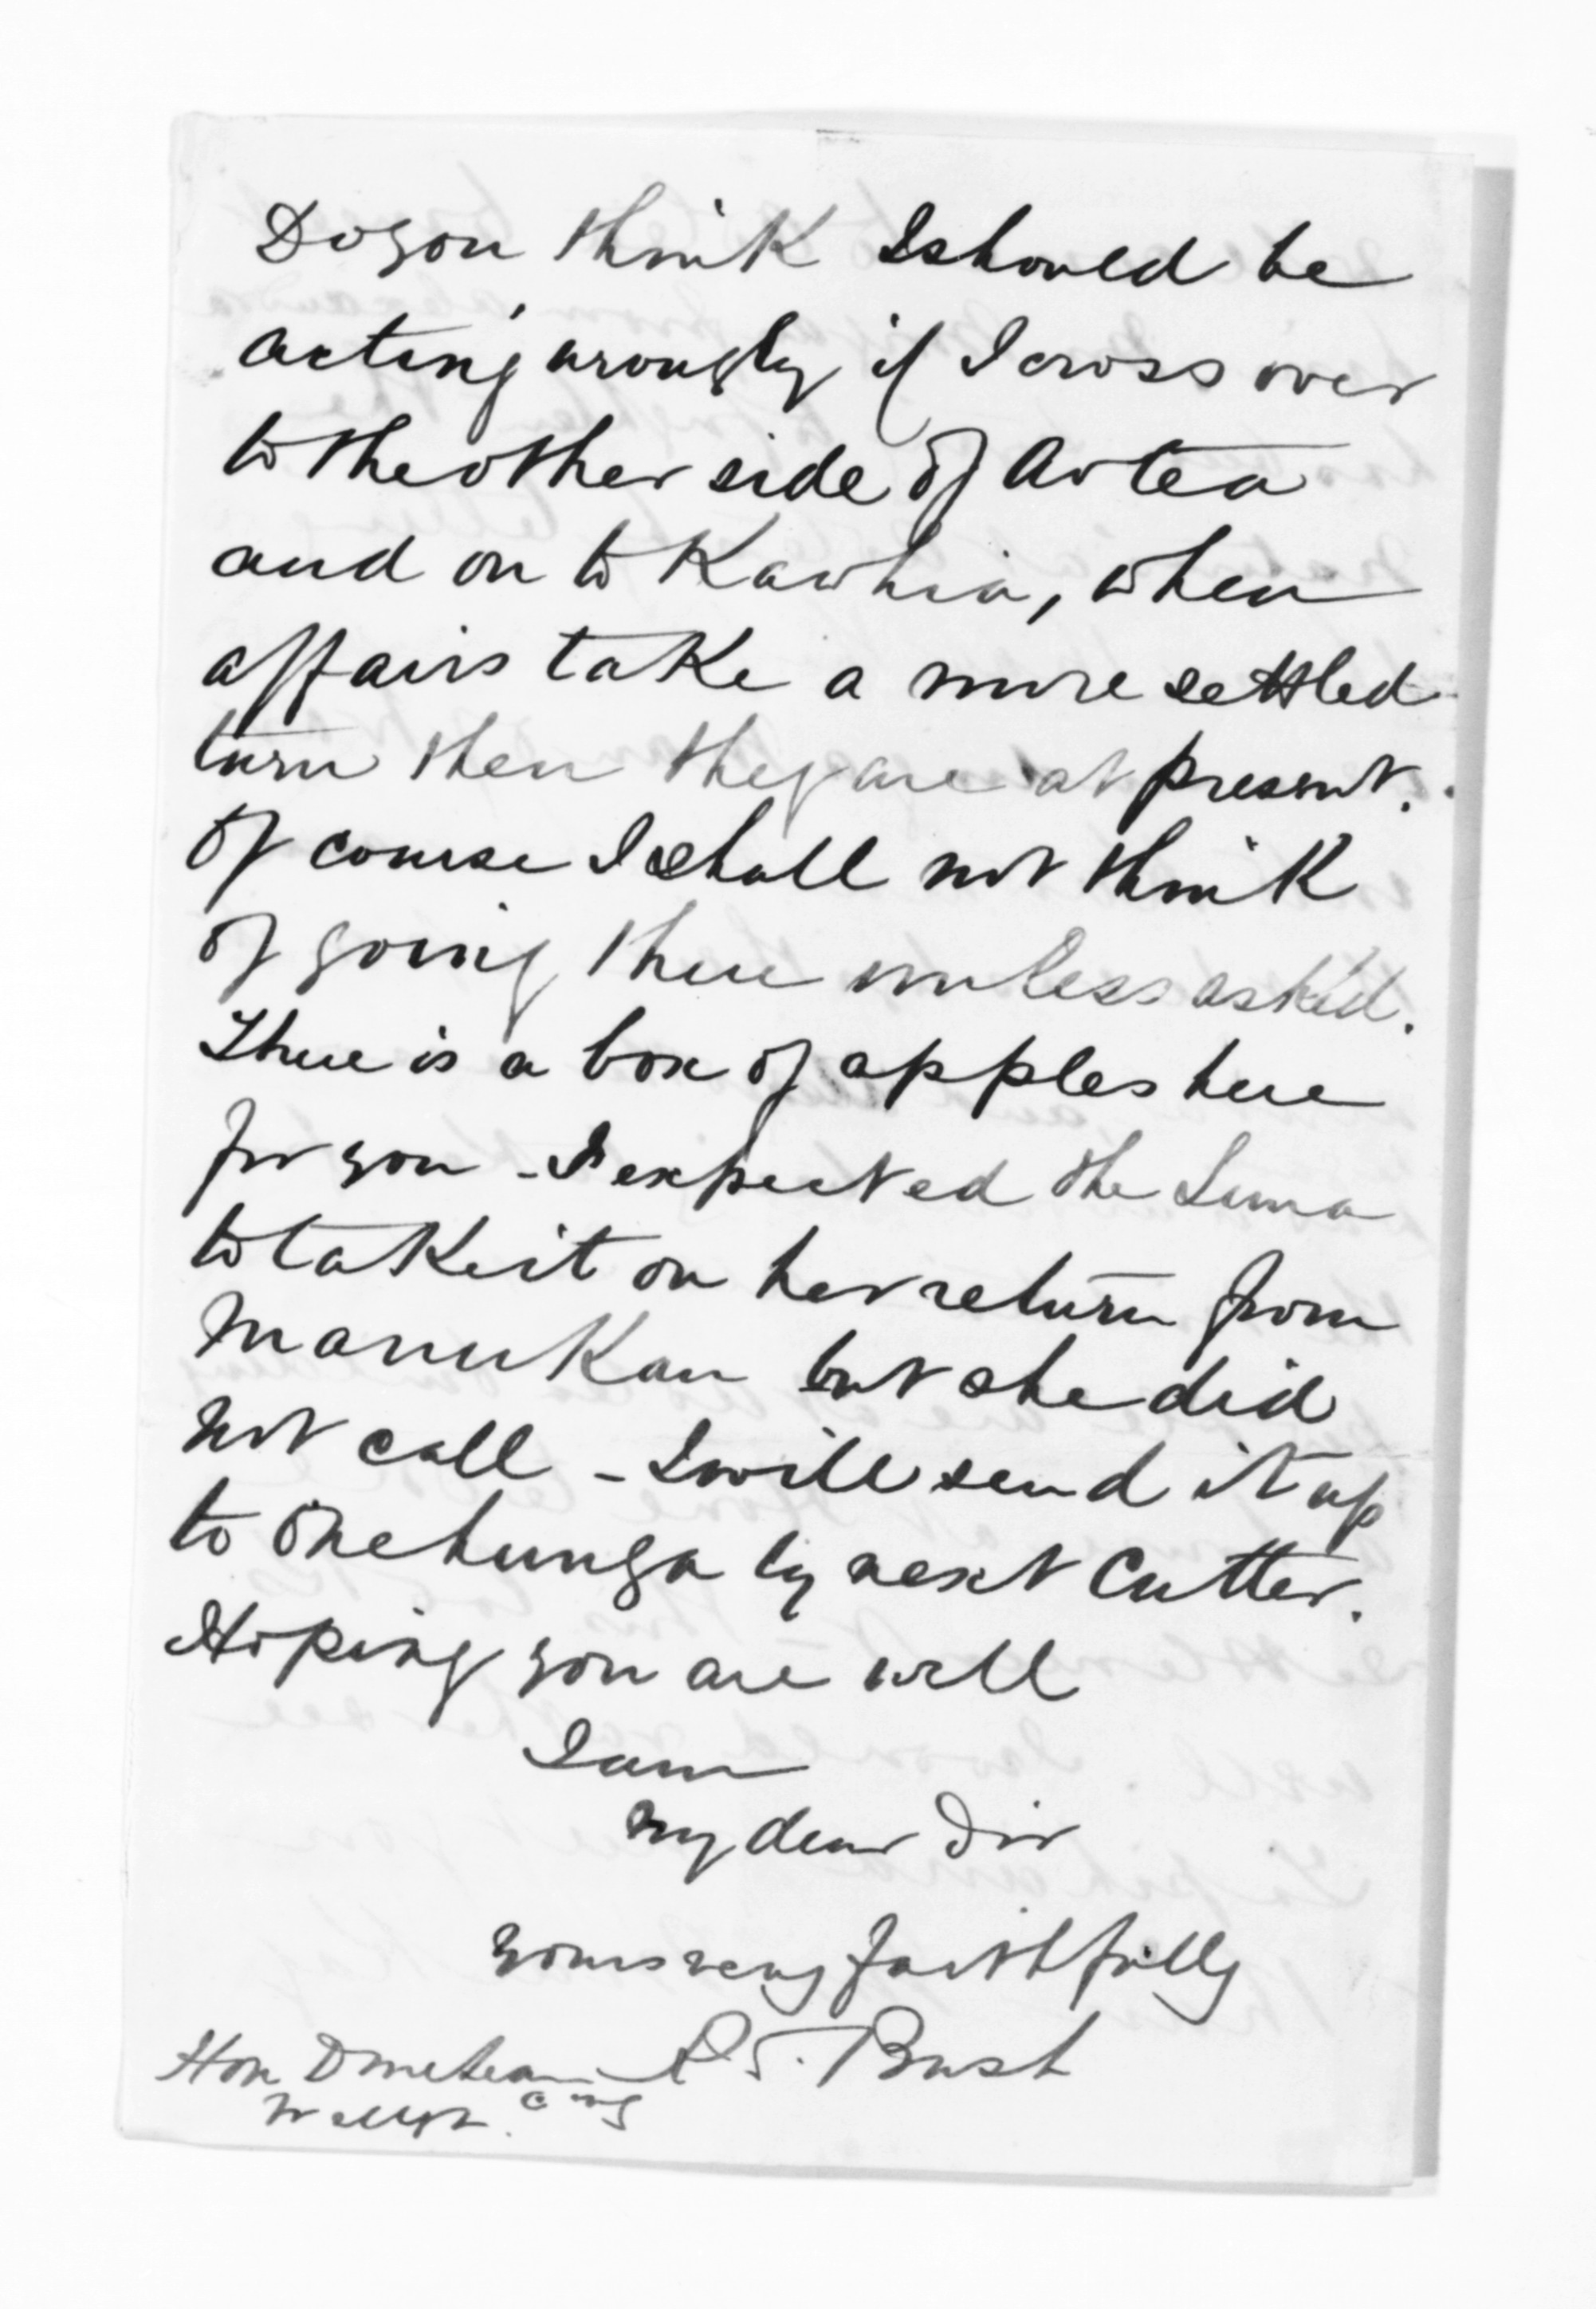 Do you think I should be
acting wrongly if I cross over
to the other side of Aotea
and on to Kawhia, when
affairs take a more settled
turn then they are at present.
Of course I shall not think
of going there unless asked.
There is a box of apples here
for you - I expected the Luna
to take it on her return from
Manukau but she did
not call - I will send it up
to Onehunga by next Cutter.
Hoping you are well
I am
My dear Sir
yours very faithfully
R. S. Bush
Hon D McLean C M G
Wellgtn.